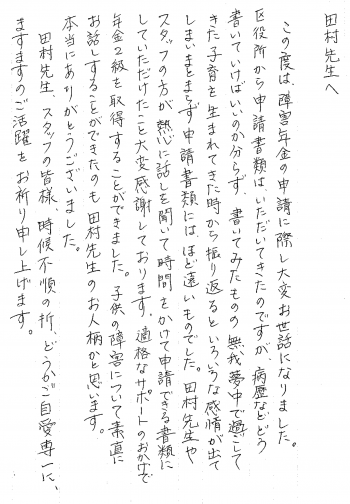 田村先生へ
この度は、障害年金の申請に際し大変お世話になりました。
区役所から申請書類はいただいてきたのですが、病歴などどう
書いていけばいいのか分らず、書いてみたものの無我夢中で過ごして
きた子育を生まれてきた時から振り返るといろいろな感情が出て
しまいまとまらず申請書類にはほど遠いものでした。田村先生や
スタッフの方が熱心に話しを聞いて時間をかけて申請できる書類に
していただけたこと大変感謝しております。適格なサポートのおかげで
年金2級を取得することができました。子供の障害について素直に
お話しすることができたのも田村先生のお人柄かと思います。
本当にありがとうございました。
田村先生、スタッフの皆様、時候不順の折、どうかご自愛専一に、
ますますのご活躍をお祈り申し上げます。